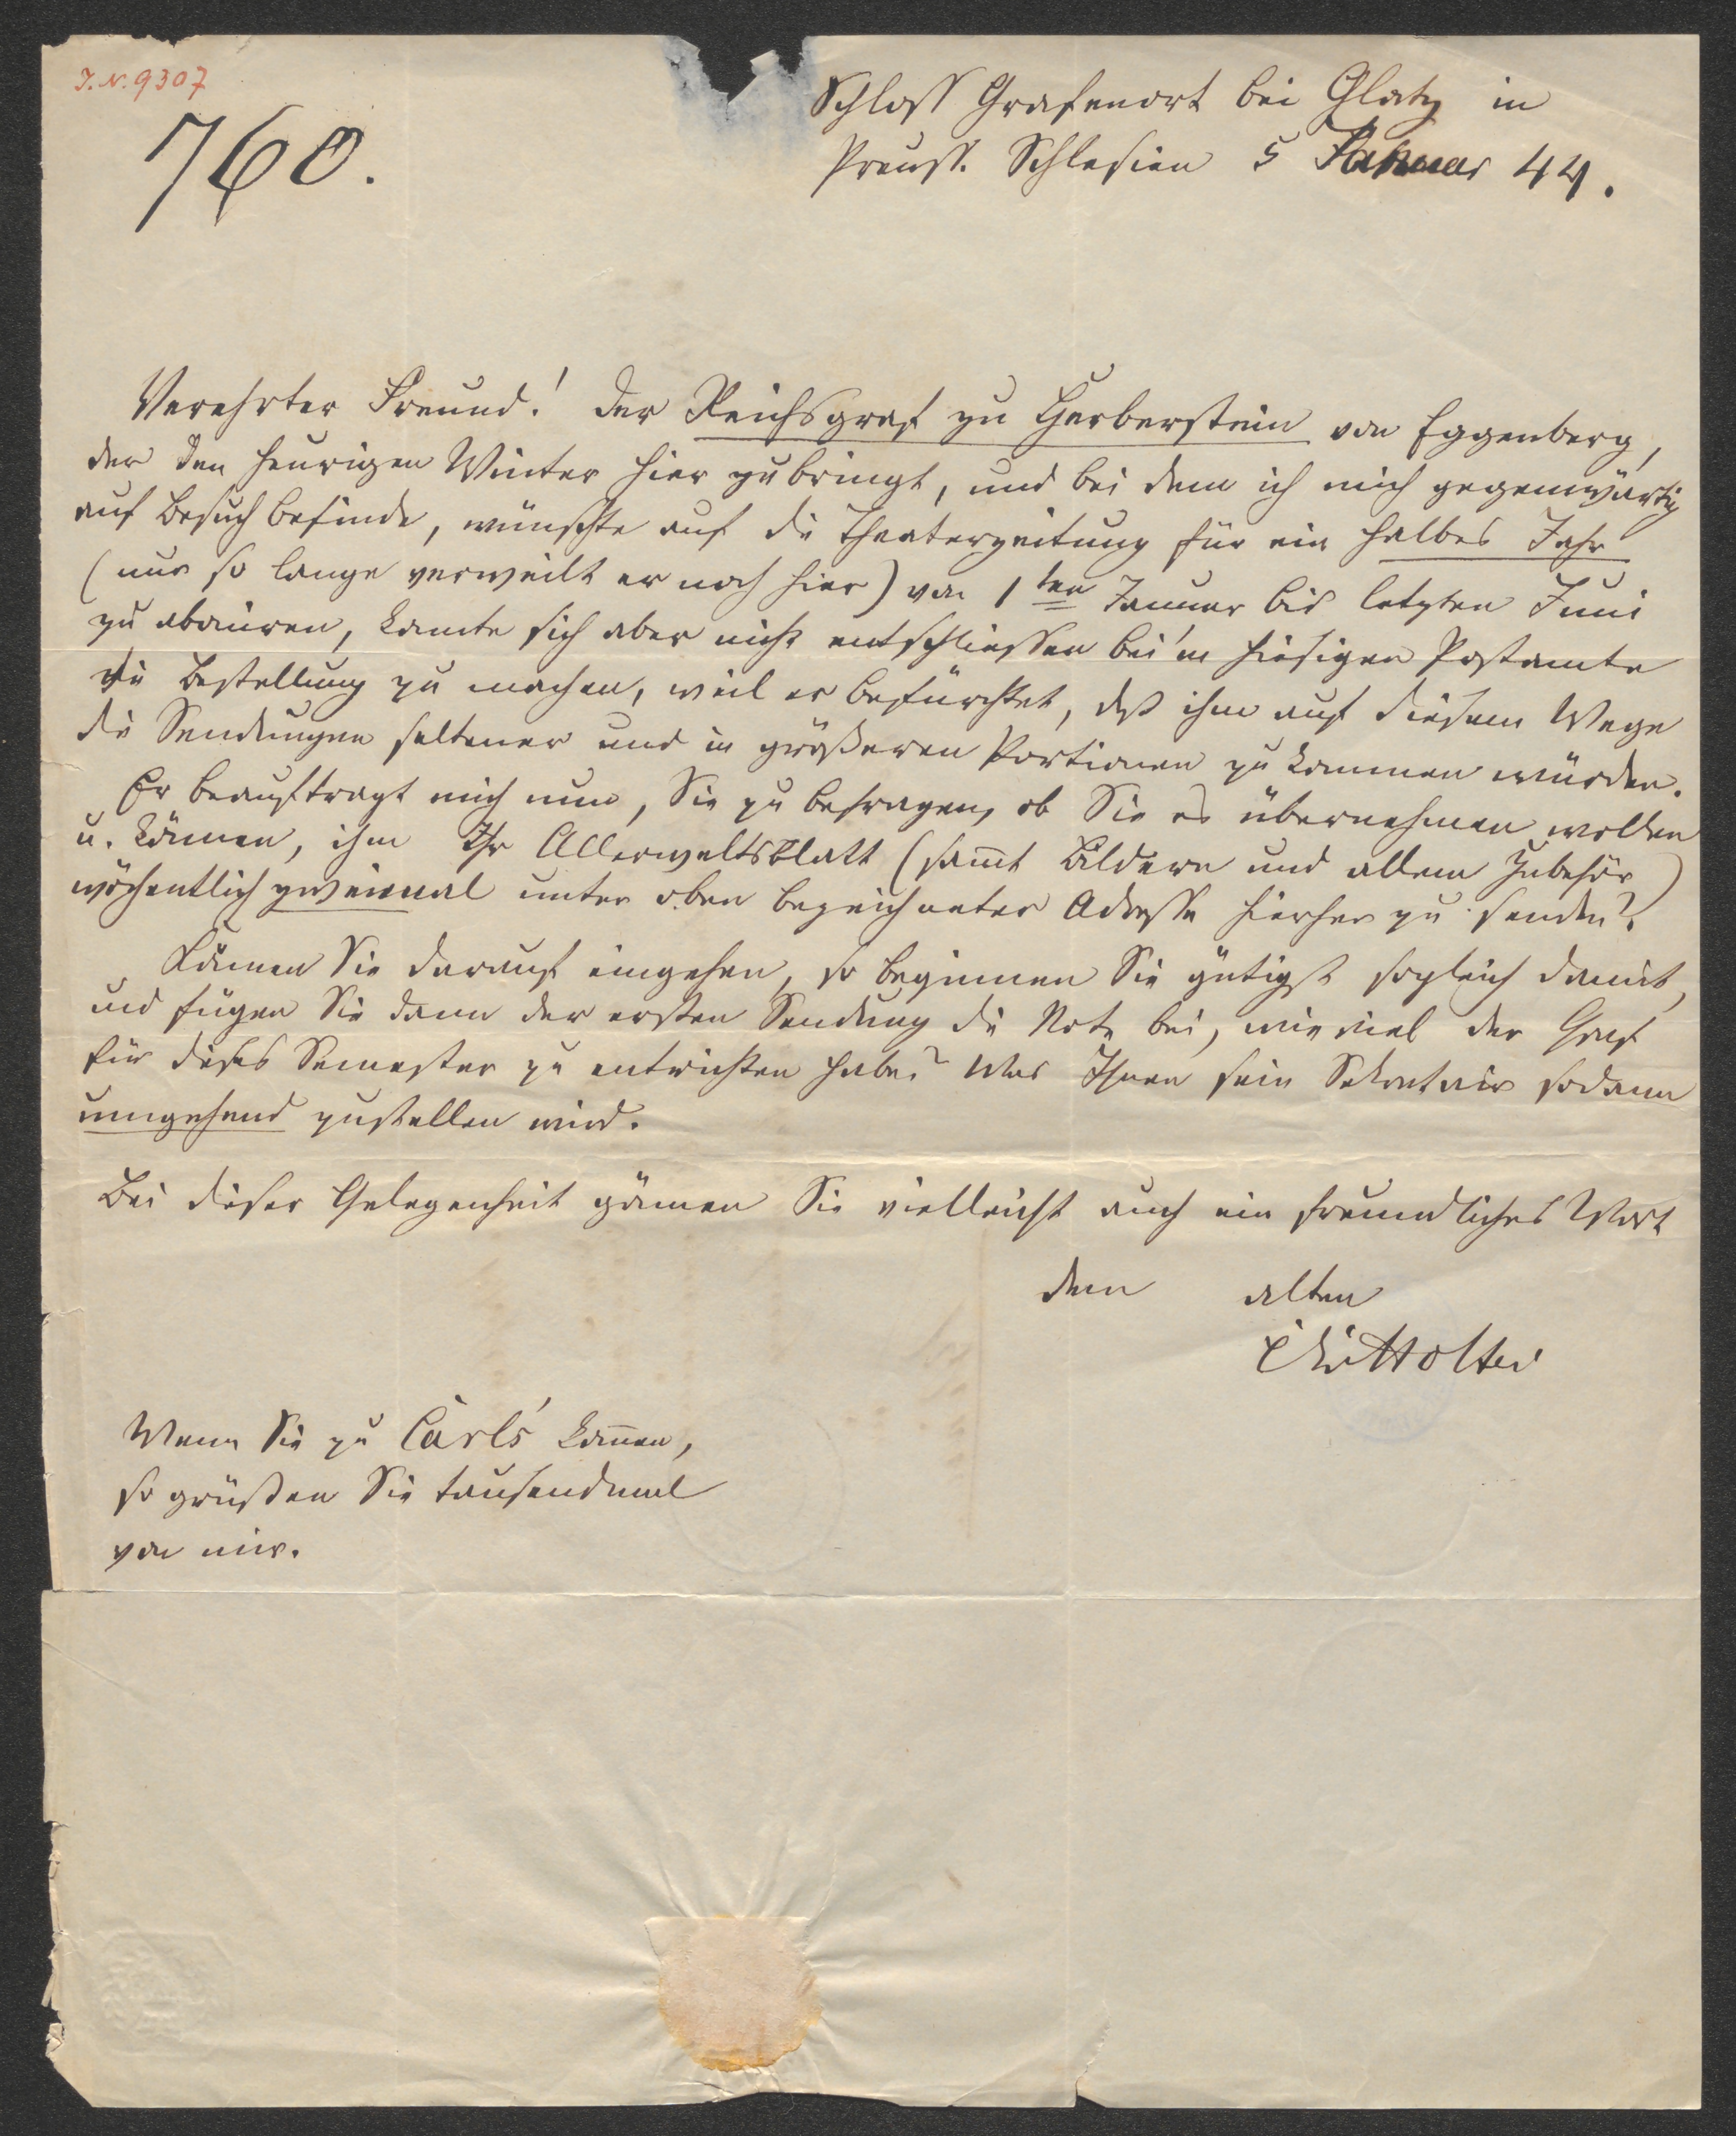 J. N. 9307
760.
Schloss Grafenort bei Glatz in
Preuss. Schlesien 5 Januar 44.
Verehrter Freund! Der Reichsgraf zu Herberstein von Eggenberg,
der den heurigen Winter hier zubringt, und bei dem ich mich gegenwärtig
auf Besuch befinde, wünschte auf die Theaterzeitung für ein halbes Jahr
(nur so lange verweilt er noch hier) von 1ten Januar bis letzten Juni
zu aboniren, konnte sich aber nicht entschliessen bei'm hiesigen Postamte
die Bestellung zu machen, weil er befürchtet, daß ihm auf diesem Wege
die Sendungen seltener und in größeren Portionen zu kommen würden.
Er beauftragt mich nun, Sie zu befragen, ob Sie es übernehmen wollen
u. können, ihm Ihr Allerweltsblatt (sam̄t Bildern und allem Zubehör)
wöchentlich zweimal unter oben bezeichneter Adresse hierher zu senden?
Können Sie darauf eingehen, so beginnen Sie gütigst sogleich damit,
und fügen Sie dann der ersten Sendung die Note bei, wie viel der Graf
für dieses Semester zu entrichten habe? Was Ihnen sein Sekretair sodann
umgehend zustellen wird.
Bei dieser Gelegenheit gönnen Sie vielleicht auch ein freundliches Wort
dem alten
Holtei
Wenn Sie zu Carls' kom̄en,
so grüßen Sie tausendmal
von mir.